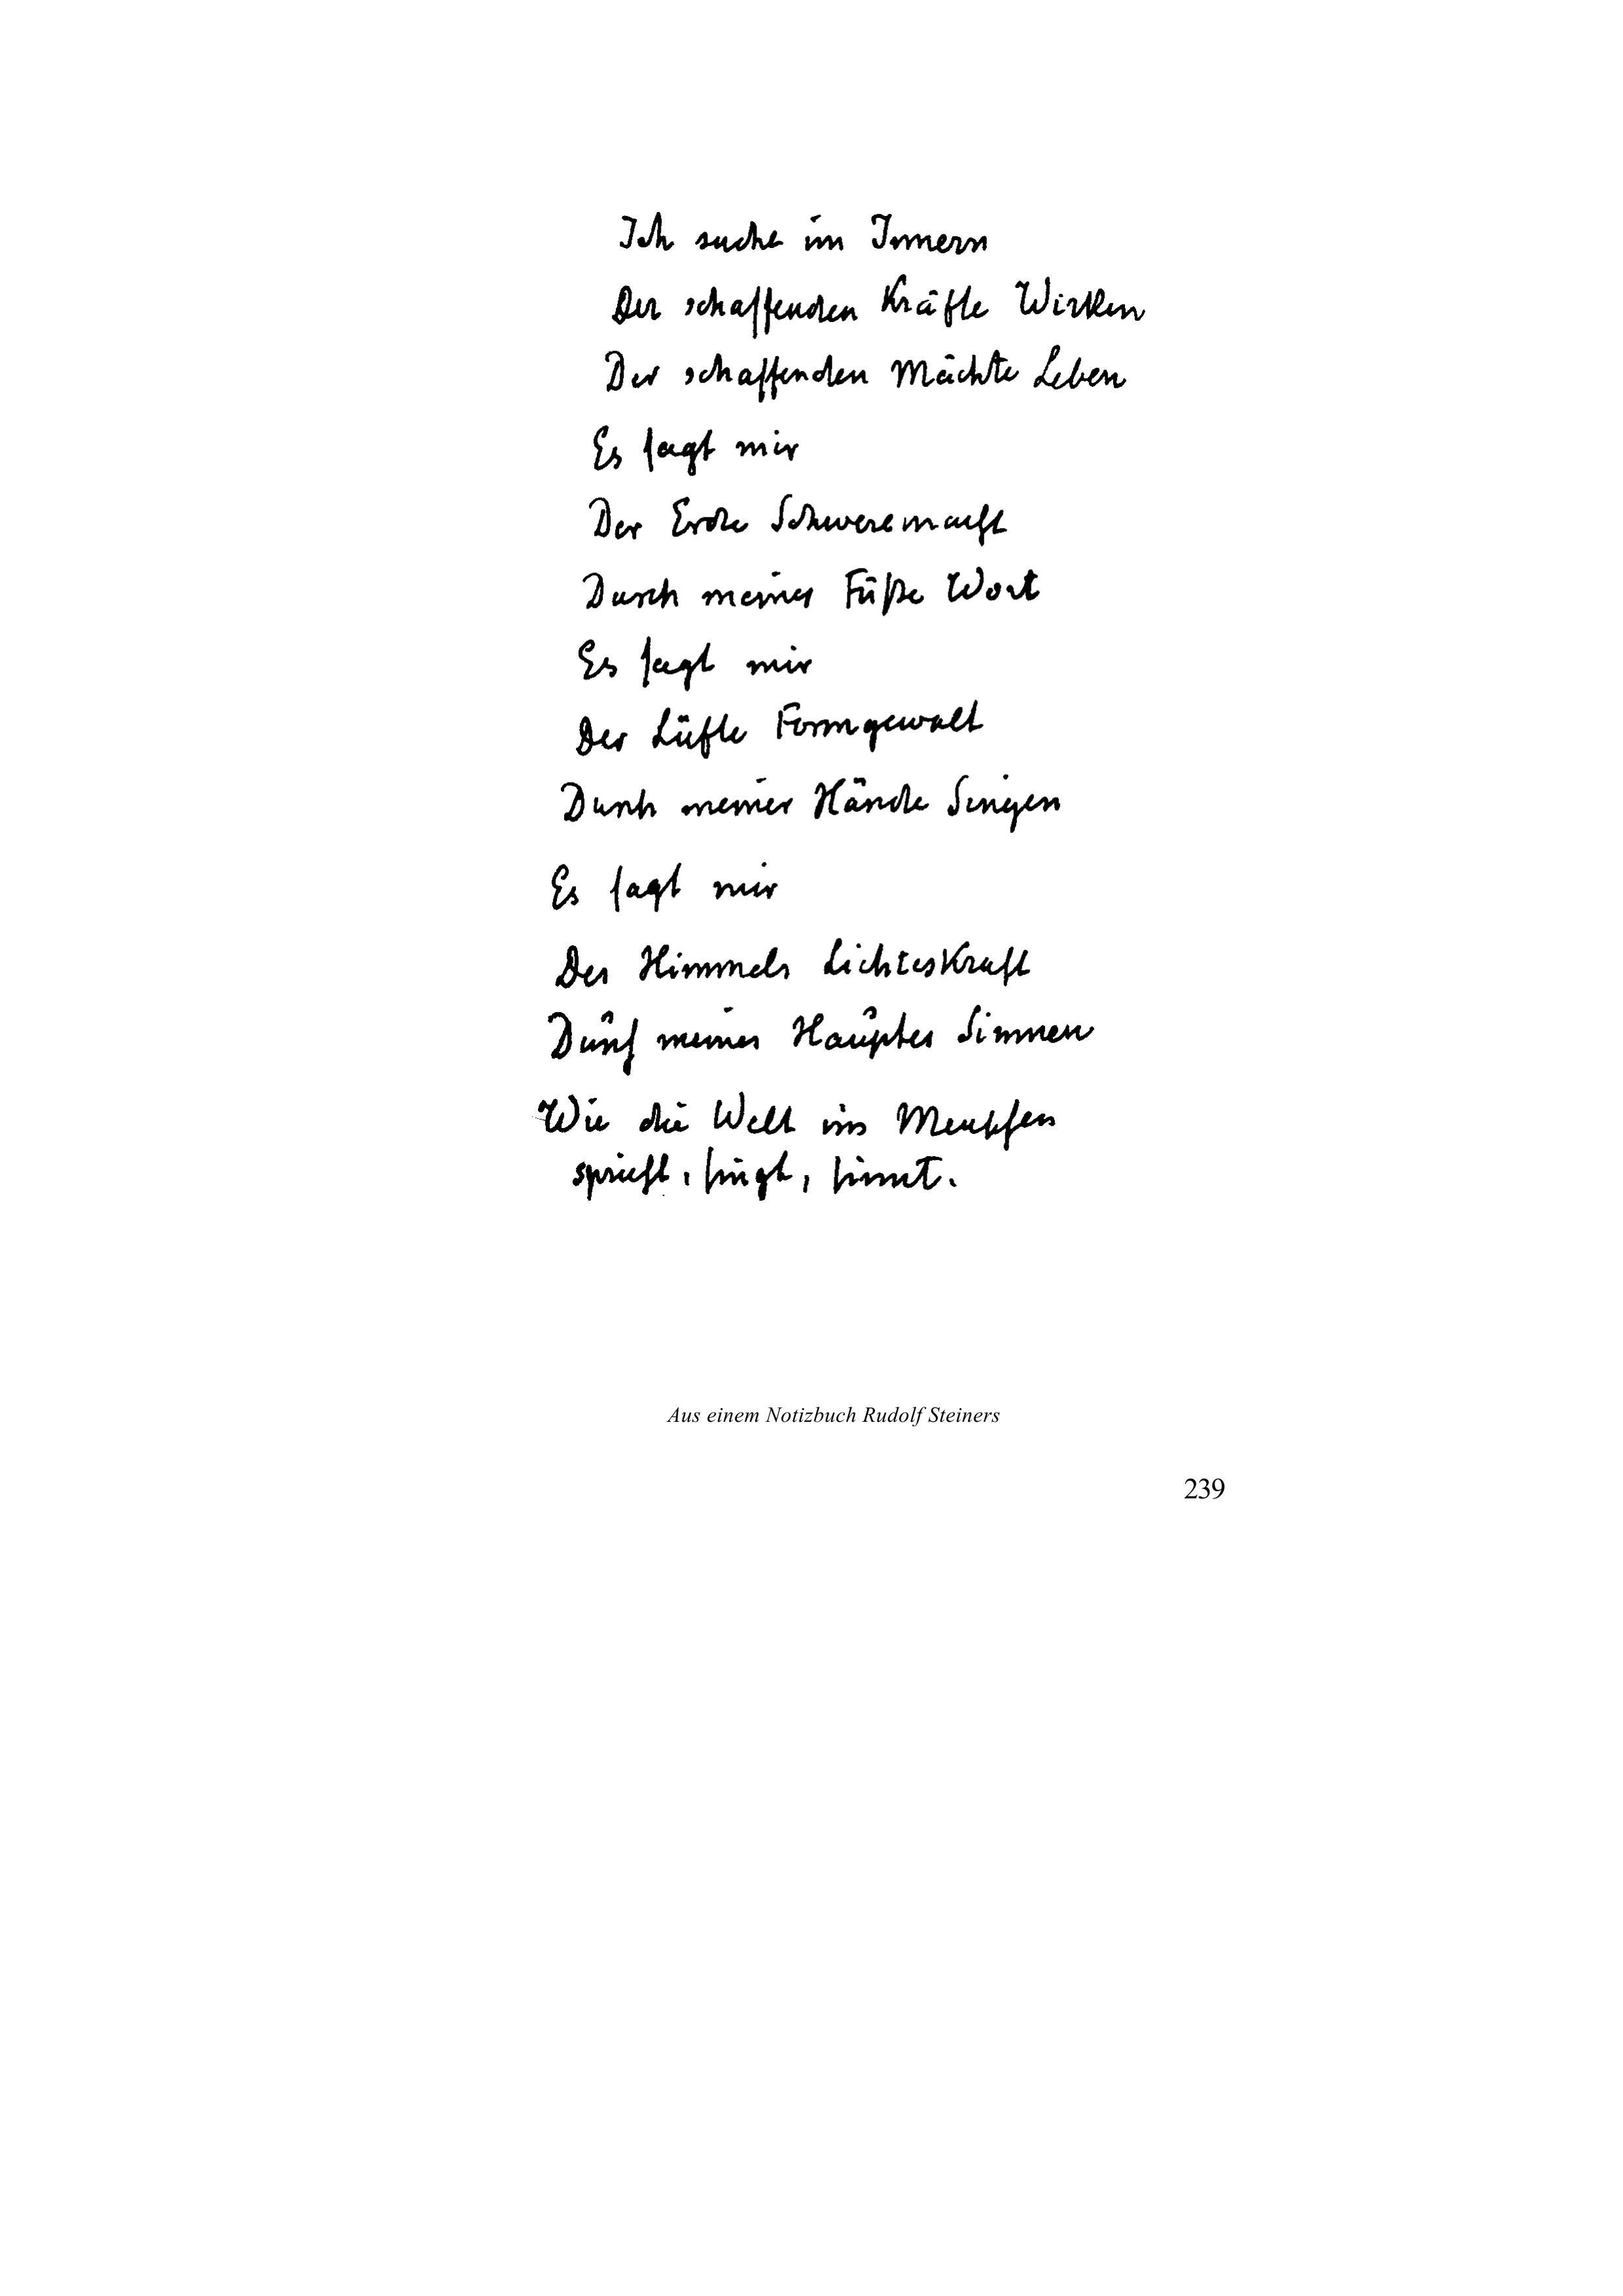 Ich suche im Innern
Der schaffenden Kräfte Wirken
Der schaffenden Mächte Leben
Es sagt mir
Der Erde Schweremacht
Durch meiner Füße Wort
Es sagt mir
Der Lüfte Formgewalt
Durch meiner Hände Singen
Es sagt mir
Des Himmels Lichteskraft
Durch meines Hauptes Sinnen
Wie die Welt im Menschen
spricht, singt, sinnt.
Aus einem Notizbuch Rudolf Steiners
239